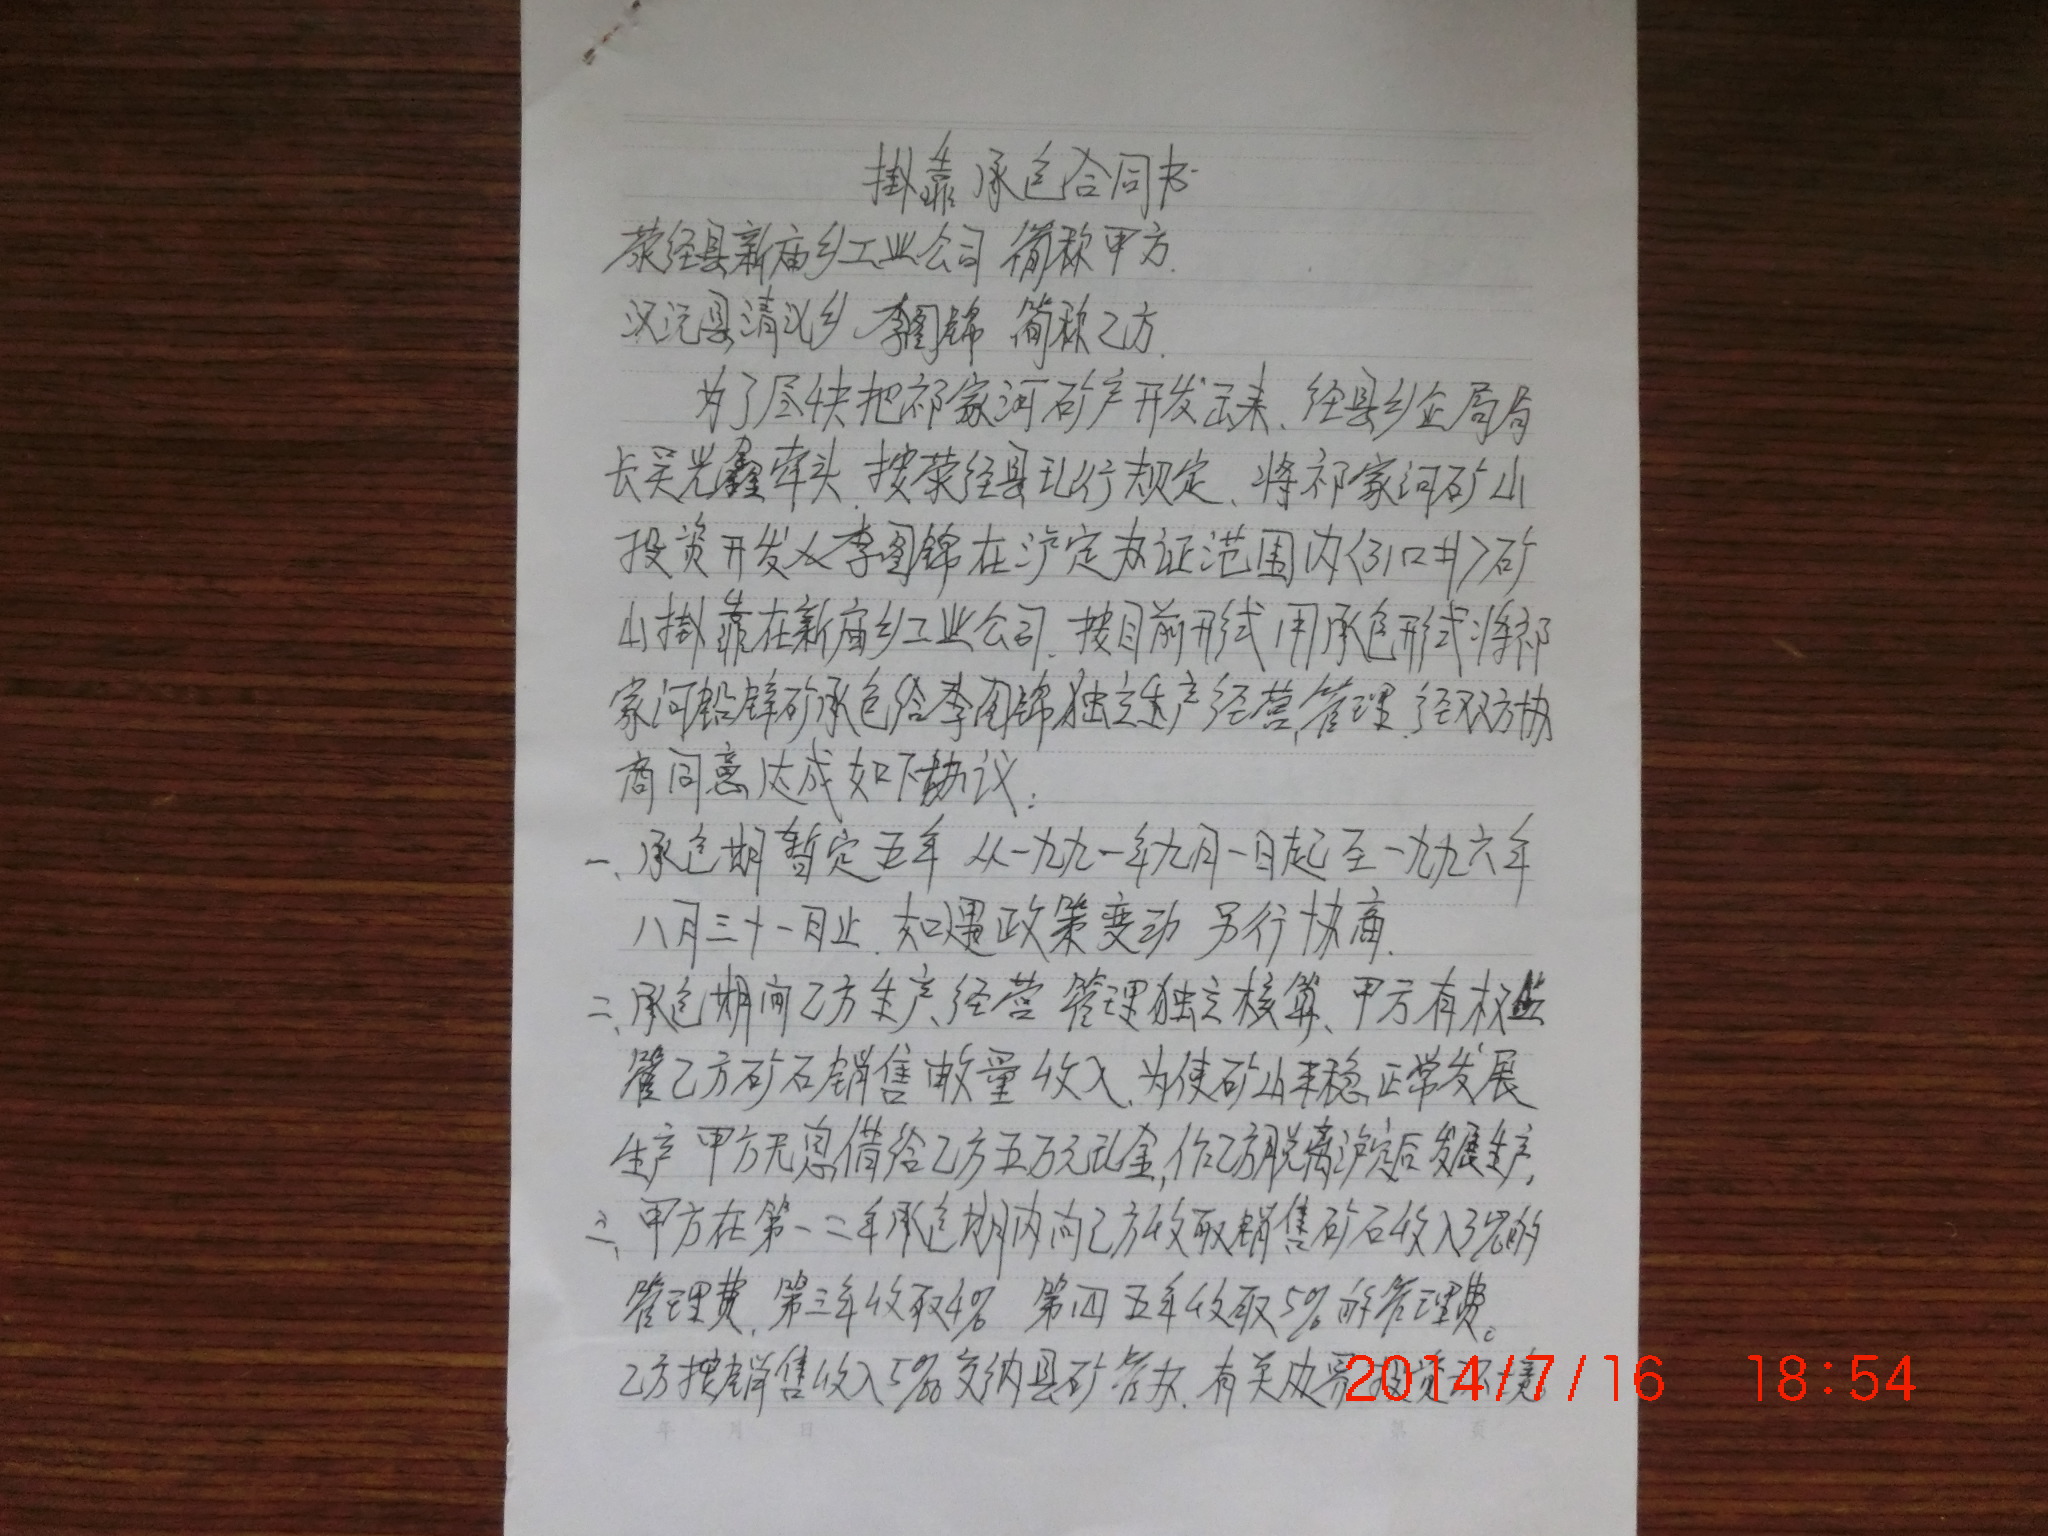 掛靠承包合同书
荥经县新庙乡工业公司 简称甲方.
汉沅县清议乡 李图锦 简称乙方.
为了尽快把祁家河矿产开发出来、经县乡企局局
长吴光鑫牵头.按荥经县现行规定、将祁家河矿山
投资开发人李图锦在泸定办证范围内〈31口井〉矿
山掛靠在新庙乡工业公司.按目前形式 用承包形式将祁
家河铅锌矿承包给李图锦独立生产经营,管理.经双方协
商同意达成如下协议:
一、承包期暂定五年 从一九九一年九月一日起至一九九六年
八月三十一日止.如遇政策变动 另行协商.
二、承包期间乙方生产、经营 管理独立核算、甲方有权监
督乙方矿石销售数量收入.为使矿山平稳,正常发展
生产 甲方无息借给乙方五万元现金,作乙方脱离泸定后发展生产.
三、甲方在第一二年承包期内向乙方收取销售矿石收入3%的
管理费.第三年收取4% 第四五年收取5%的管理费。
乙方按销售收入5%交纳县矿管办.有关
年 月 日 第 页
2014/7/16 18:54